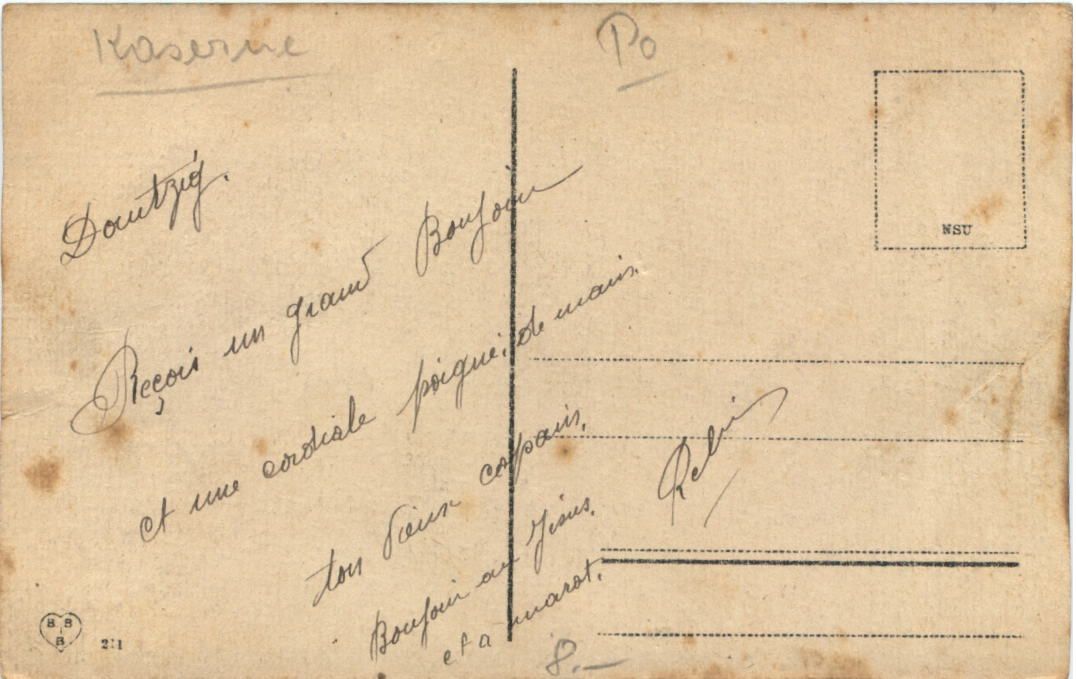 Kaserne
Po
Dantzig.
Reçois un grand Bonjour
et une cordiale poigné. de main.
ton vieux copain.
Bonjour au
et a marot.
NSU
B B
B
211
8.—